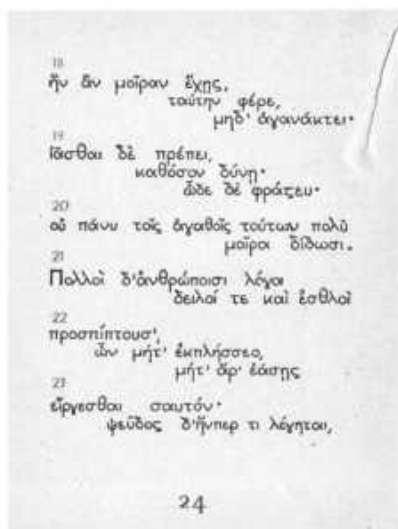 18
ἣν ἂν μοῖραν ἔχῃς,
ταύτην φέρε,
μηδ' ἀγανάκτει·
19
ἰᾶσθαι δὲ πρέπει,
καθόσον δύνῃ·
ὧδε δὲ φράζευ·
20
οὐ πάνυ τοῖς ἀγαθοῖς τούτων πολὺ
μοῖρα δίδωσι.
21
Πολλοὶ δ'ἀνθρώποισι λόγοι
δειλοί τε καὶ ἐσθλοὶ
22
προσπίπτουσ',
ὧν μήτ' ἐκπλήσσεο,
μήτ' ἄρ' ἐάσῃς
23
εἴργεσθαι σαυτόν·
ψεῦδος δ'ἤνπερ τι λέγηται,
24